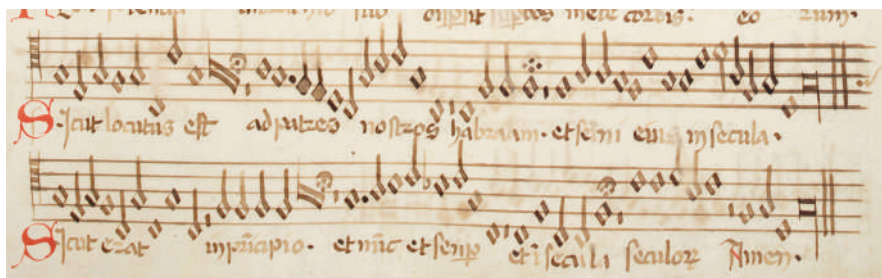 suo disp̄sit sup̄bos mēte cordis. eo rum.
Sicut locutus est ad patres nostros habraam. et semi eius in secula.
Sicut erat in pr̄icipio. et nūc et semp̱ et ī secula seculoꝝ Amen.